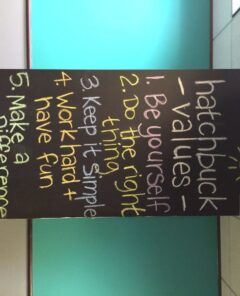 hatchbuck
- values -
1. Be yourself
2. Do the right
thing
3. Keep it simple
4. Work hard +
have fun
5. Make a
Difference